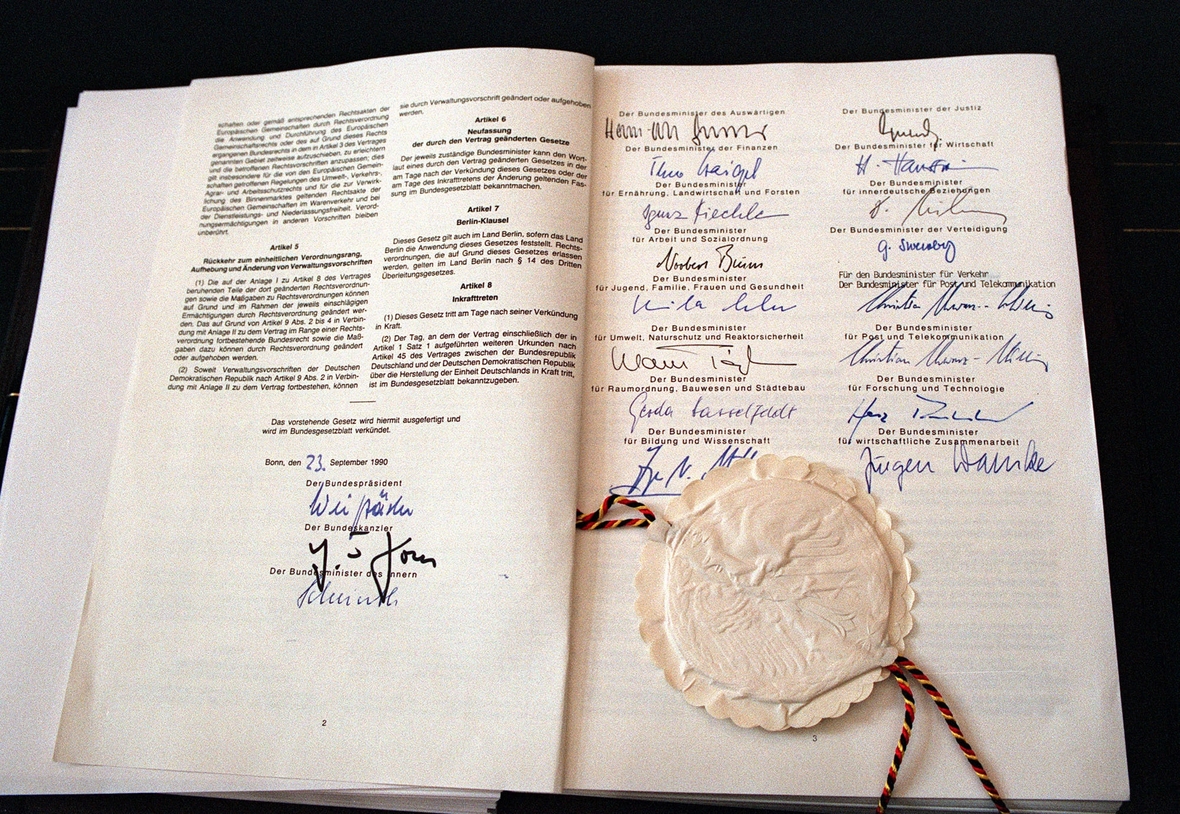 schalten oder gemäß entsprechenden Rechtsakten der
Europäischen Gemeinschaften durch Rechtsverordnung
die Anwendung und Durchführung des Europäischen
Gemeinschaftsrechts oder des auf Grund dieses Rechts
ergangenen Bundesrechts in dem in Artikel 3 des Vertrages
genannten Gebiet zeitweise aufzuschieben, zu erleichtern
und die betroffenen Rechtsvorschriften anzupassen; dies
gilt insbesondere für die von den Europäischen Gemein-
schaften getroffenen Regelungen des Umwelt-, Verkehrs-,
Agrar- und Arbeitsschutzrechts und für die zur Verwirk-
lichung des Binnenmarktes geltenden Rechtsakte der
Europäischen Gemeinschaften im Warenverkehr und bei
der Dienstleistungs- und Niederlassungsfreiheit. Verord-
nungsermächtigungen in anderen Vorschriften bleiben
unberührt.
Artikel 5
Rückkehr zum einheitlichen Verordnungsrang,
Aufhebung und Änderung von Verwaltungsvorschriften
(1) Die auf der Anlage I zu Artikel 8 des Vertrages
beruhenden Teile der dort geänderten Rechtsverordnun-
gen sowie die Maßgaben zu Rechtsverordnungen können
auf Grund und im Rahmen der jeweils einschlägigen
Ermächtigungen durch Rechtsverordnung geändert wer-
den. Das auf Grund von Artikel 9 Abs. 2 bis 4 in Verbin-
dung mit Anlage II zu dem Vertrag im Range einer Rechts-
verordnung fortbestehende Bundesrecht sowie die Maß-
gaben dazu können durch Rechtsverordnung geändert
oder aufgehoben werden.
(2) Soweit Verwaltungsvorschriften der Deutschen
Demokratischen Republik nach Artikel 9 Abs. 2 in Verbin-
dung mit Anlage II zu dem Vertrag fortbestehen, können
sie durch Verwaltungsvorschrift geändert oder aufgehoben
werden.
Artikel 6
Neufassung
der durch den Vertrag geänderten Gesetze
Der jeweils zuständige Bundesminister kann den Wort-
laut eines durch den Vertrag geänderten Gesetzes in der
am Tage nach der Verkündung dieses Gesetzes oder der
am Tage des Inkrafttretens der Änderung geltenden Fas-
sung im Bundesgesetzblatt bekanntmachen.
Artikel 7
Berlin-Klausel
Dieses Gesetz gilt auch im Land Berlin, sofern das Land
Berlin die Anwendung dieses Gesetzes feststellt. Rechts-
verordnungen, die auf Grund dieses Gesetzes erlassen
werden, gelten im Land Berlin nach § 14 des Dritten
Überleitungsgesetzes.
Artikel 8
Inkrafttreten
(1) Dieses Gesetz tritt am Tage nach seiner Verkündung
in Kraft.
(2) Der Tag, an dem der Vertrag einschließlich der in
Artikel 1 Satz 1 aufgeführten weiteren Urkunden nach
Artikel 45 des Vertrages zwischen der Bundesrepublik
Deutschland und der Deutschen Demokratischen Republik
über die Herstellung der Einheit Deutschlands in Kraft tritt,
ist im Bundesgesetzblatt bekanntzugeben.
Das vorstehende Gesetz wird hiermit ausgefertigt und
wird im Bundesgesetzblatt verkündet.
Bonn, den 23. September 1990
Der Bundespräsident
Der Bundeskanzler
Der Bundesminister des Innern
2
Der Bundesminister des Auswärtigen
Der Bundesminister der Finanzen
Theo Waigel
Der Bundesminister
für Ernährung, Landwirtschaft und Forsten
Ignaz Kiechle
Der Bundesminister
für Arbeit und Sozialordnung
Norbert Blüm
Der Bundesminister
für Jugend, Familie, Frauen und Gesundheit
Der Bundesminister
für Umwelt, Naturschutz und Reaktorsicherheit
Der Bundesminister
für Raumordnung, Bauwesen und Städtebau
Gerda Hasselfeldt
Der Bundesminister
für Bildung und Wissenschaft
Der Bundesminister der Justiz
Der Bundesminister für Wirtschaft
Der Bundesminister
für innerdeutsche Beziehungen
Der Bundesminister der Verteidigung
Für den Bundesminister für Verkehr
Der Bundesminister für Post und Telekommunikation
Der Bundesminister
für Post und Telekommunikation
Der Bundesminister
für Forschung und Technologie
Der Bundesminister
für wirtschaftliche Zusammenarbeit
Jürgen Warnke
3